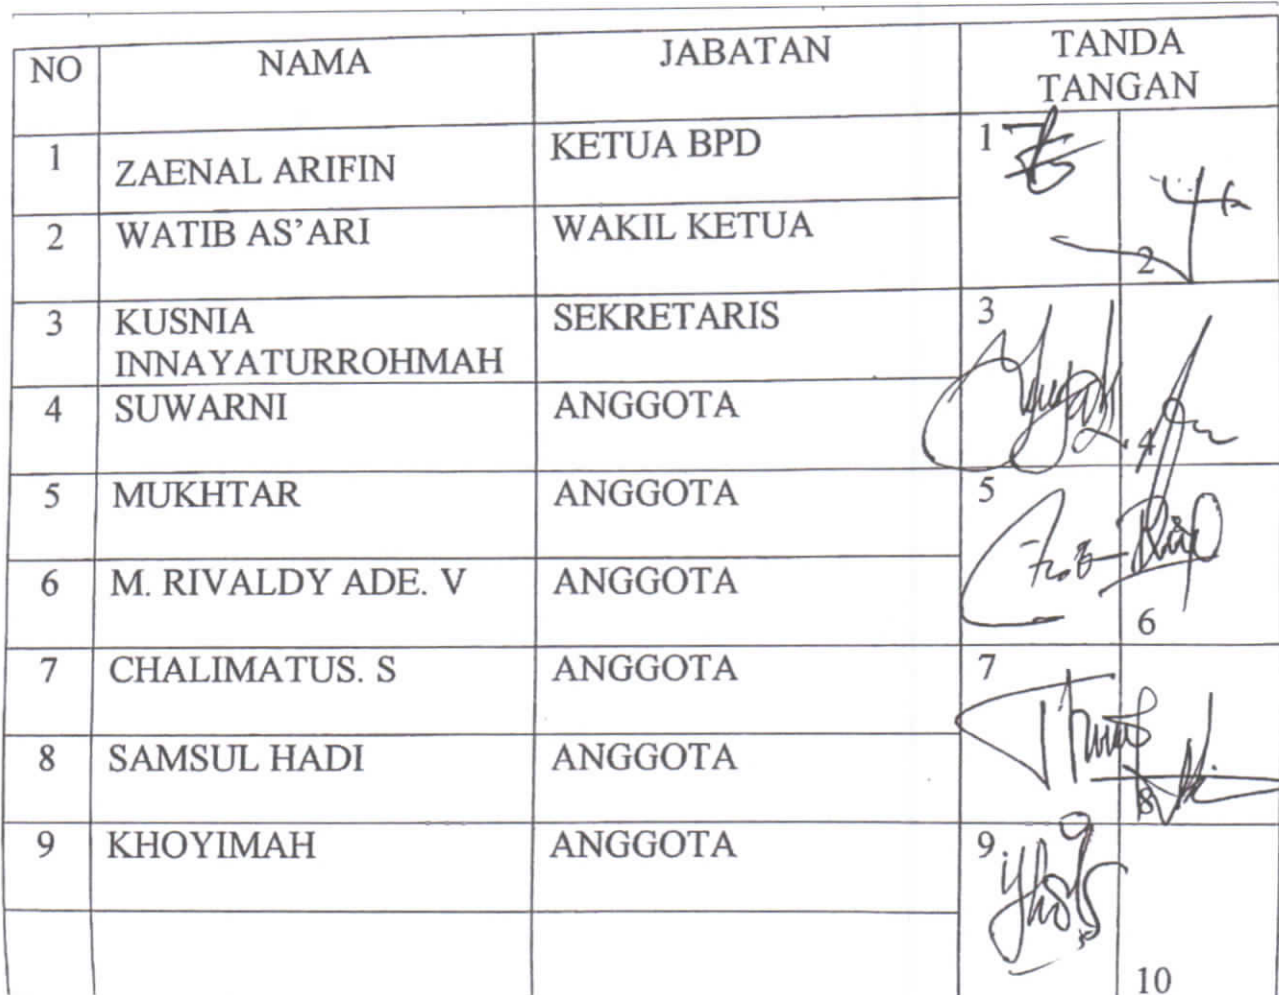 NO NAMA JABATAN TANDA
TANGAN
1 ZAENAL ARIFIN KETUA BPD 1
2 WATIB AS’ARI WAKIL KETUA 2
3 KUSNIA SEKRETARIS 3
INNAYATURROHMAH
4 SUWARNI ANGGOTA 4
5 MUKHTAR ANGGOTA 5
6 M. RIVALDY ADE. V ANGGOTA 6
7 CHALIMATUS. S ANGGOTA 7
8 SAMSUL HADI ANGGOTA 8
9 KHOYIMAH ANGGOTA 9
10